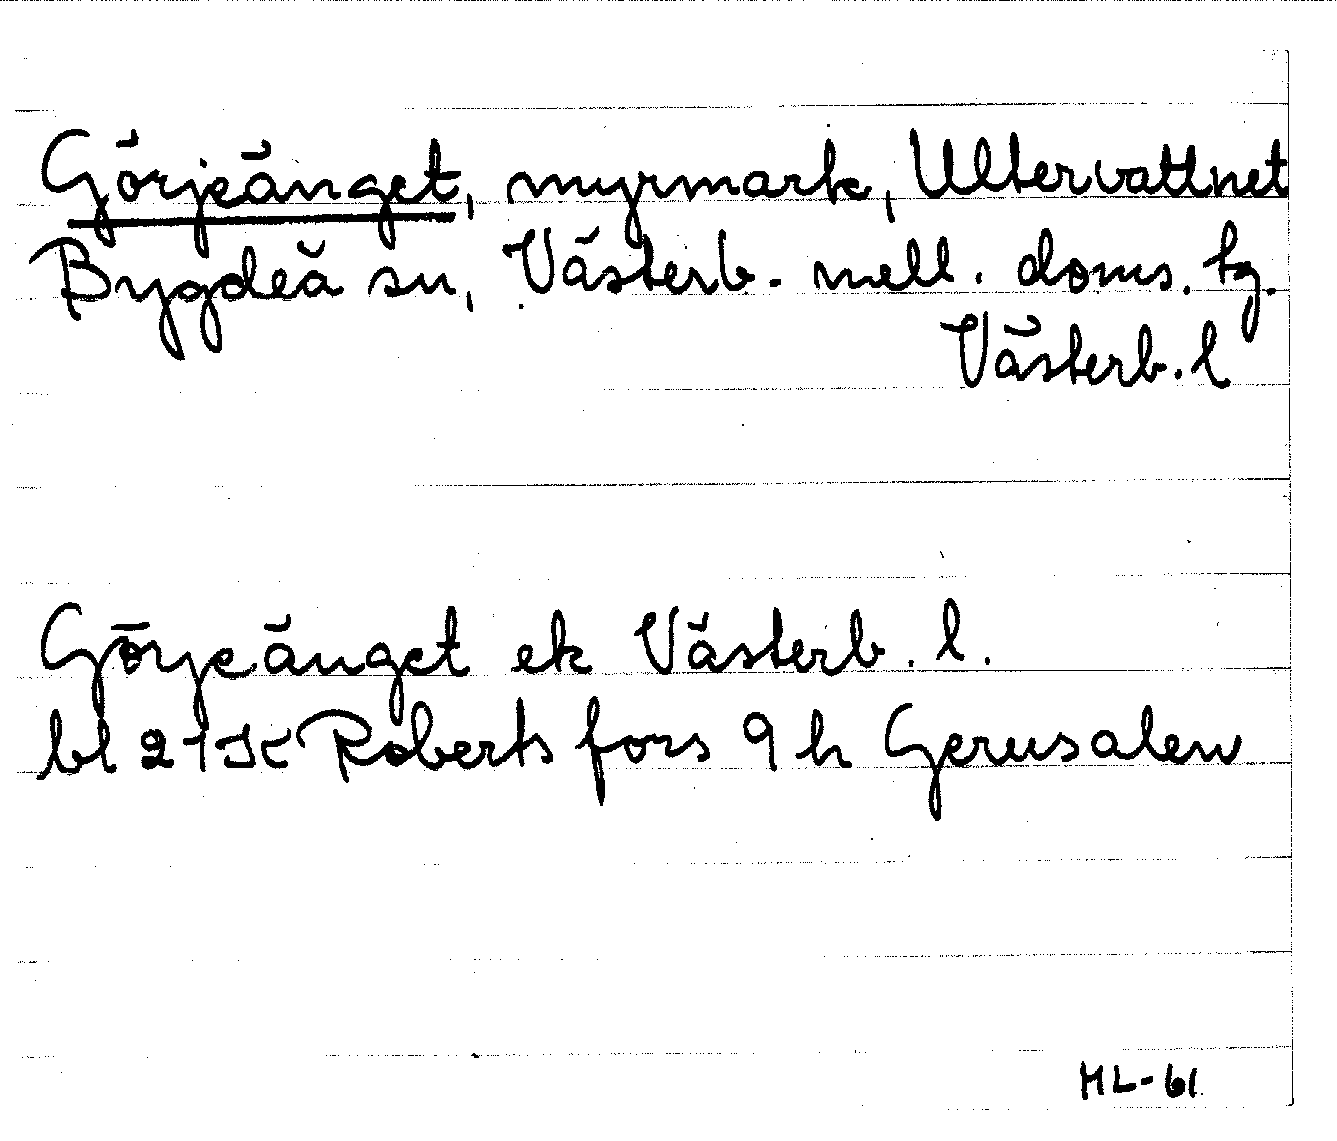 Görjeänget, myrmark, Ultervattnet
Bygdeå sn, Västerb. mell. doms. tg.
Västerb. l
Görjeänget ek Västerb. l.
bl 21K Robertsfors 9 h Gerusalem
HL-61